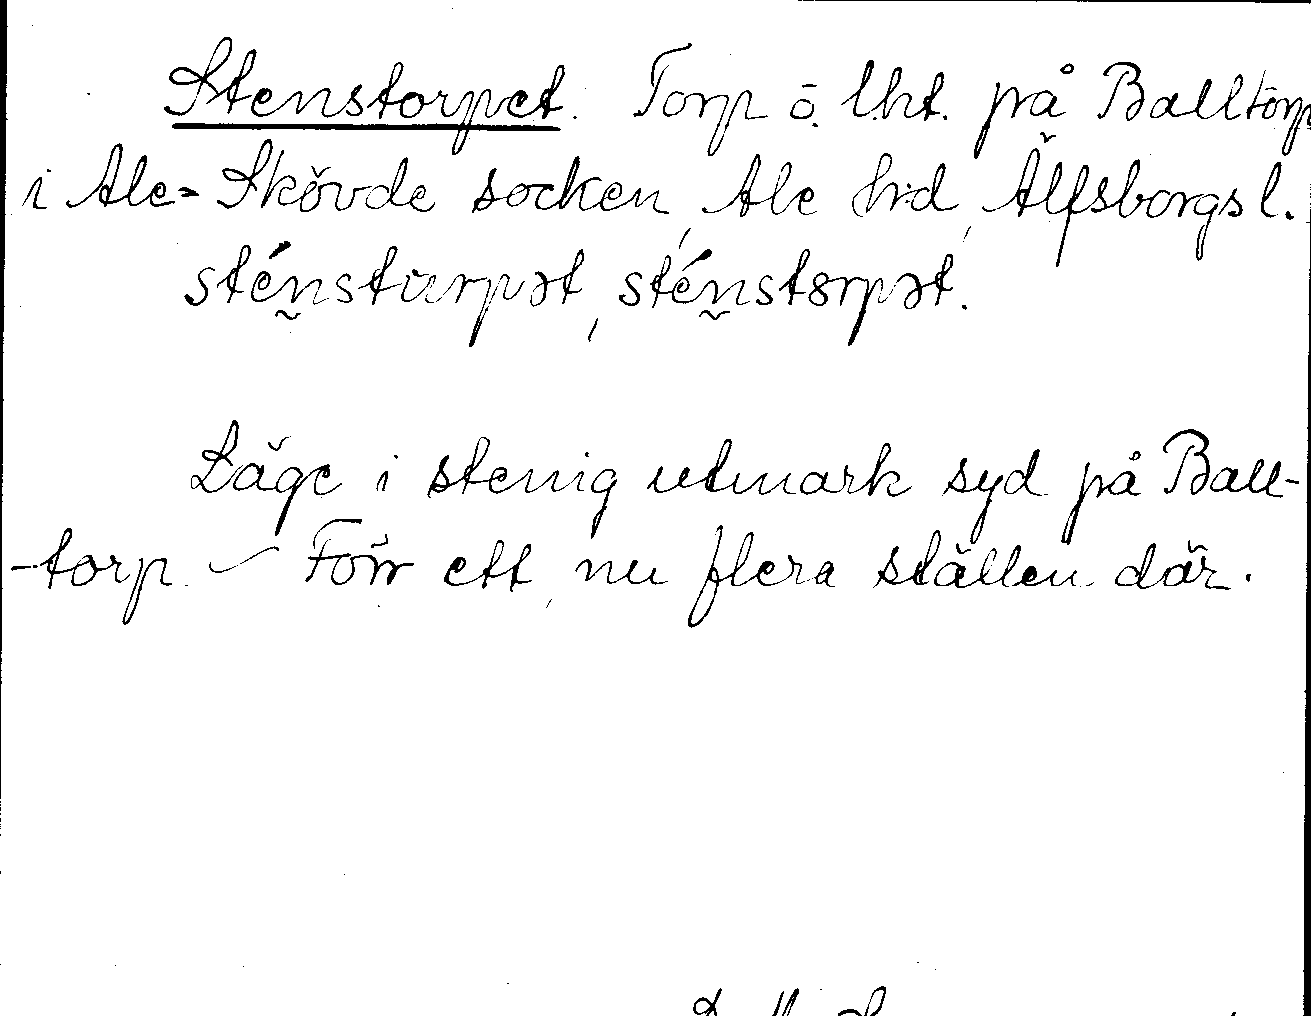 Stenstorpet. Torp o. lht. på Balltorp
i Ale-Skövde socken, Ale hd, Älfsborgs l.
sténsturpət, sténstorpət.
Läge i stenig utmark syd på Ball-
-torp. – Förr ett, nu flera ställen där.